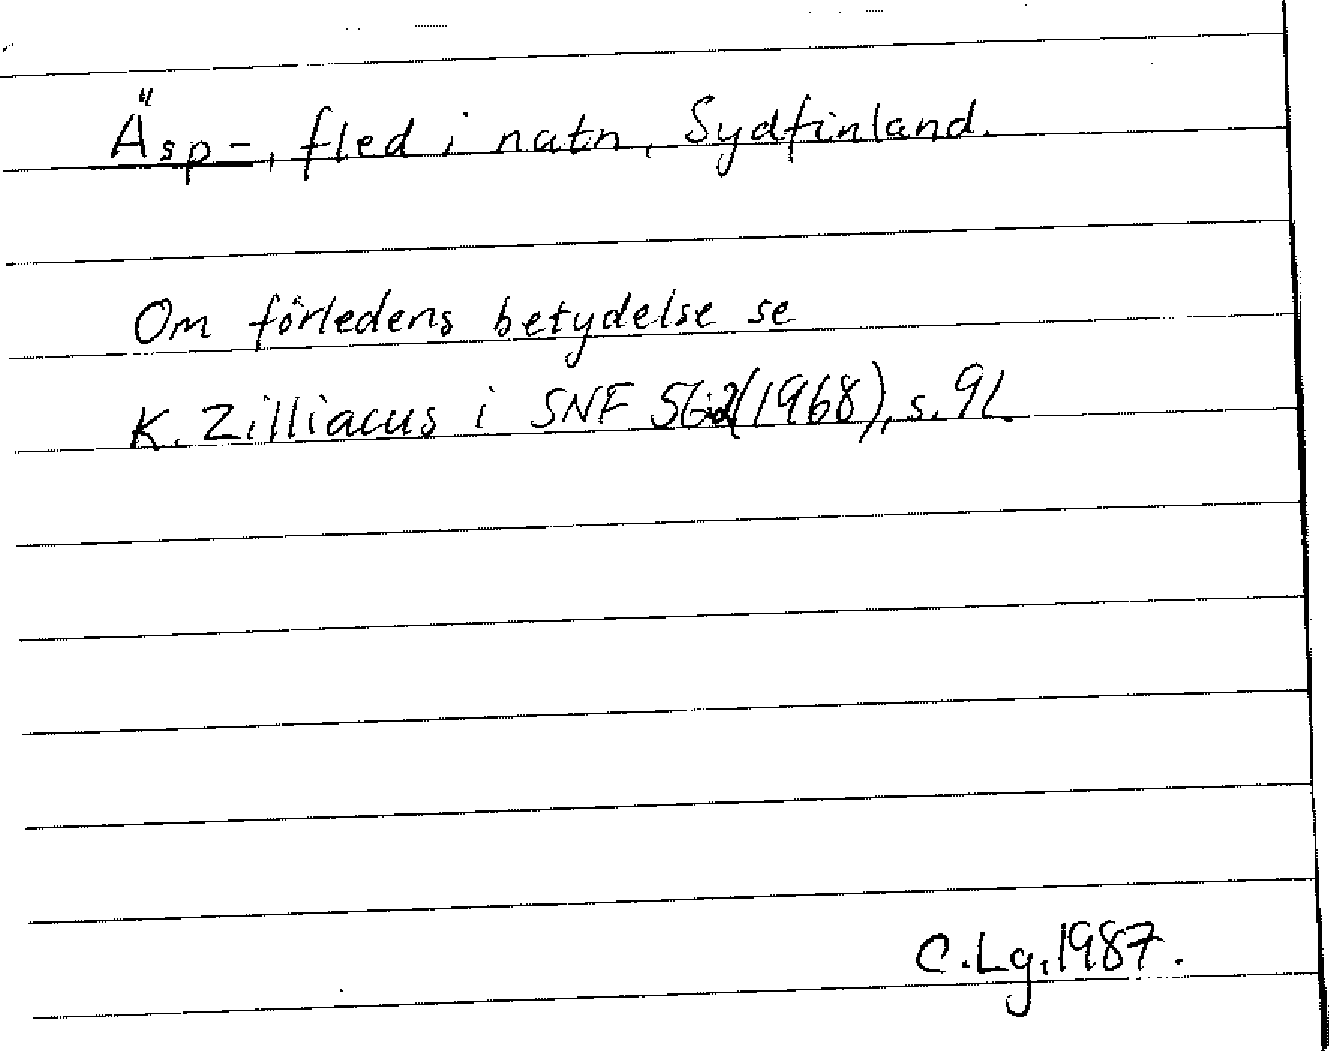 Äsp-, fled i natn, Sydfinland.
Om förledens betydelse se
K. Zilliacus i SNF 56:2(1968), s. 92
C.Lg. 1987.